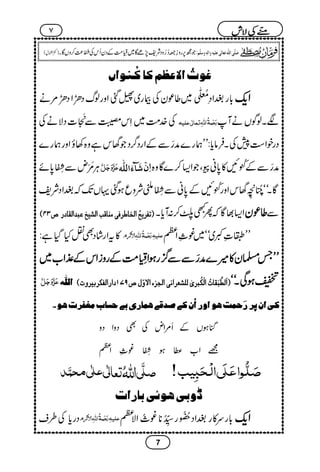 ۷ مُنّے کی لاش
فرمانِ مصطفےٰ صلی اللہ تعالٰی علیہ واٰلہٖ وسلم: جو مجھ پر روزِ جمعہ دُرُود شریف پڑھے گا میں قِیامت کے دن اُس کی شَفاعت کروں گا۔
غوثُ الاعظم کا کُنواں
ایک بار بغدادِ مُعلّٰی میں طاعون کی بیماری پھیل گئی اور لوگ دھڑا دھڑ مرنے
لگے۔ لوگوں نے آپ رَحْمَۃُ اللہِ تَعَالٰی علیہ کی خدمت میں اِس مصیبت سے نَجات دلانے کی
درخواست پیش کی۔ فرمایا: ’’ہمارے مدرَسے کے اِرد گِرد جو گھاس ہے وہ کھاؤ اور ہمارے
مدرَسے کے کُنوئیں کا پانی پیو، جو ایسا کرے گا وہ اِنْ شَآءَ اللہ عَزَّوَجَلَّ ہر مَرَض سے شِفا پائے
گا۔‘‘ چُنانچِہ گھاس اور کُنوئیں کے پانی سے شِفا ملنی شروع ہو گئی یہاں تک کہ بغداد شریف
سے طاعون ایسا بھاگا کہ پھر کبھی پلٹ کر نہ آیا۔ (تفریحُ الخاطرفی مناقب الشیخ عبدالقادر ص۴۳)
’’طبقاتِ کُبریٰ‘‘ میں غوثِ اعظم عَلَیْہِ رَحْمَۃُ اللہِ الْاَکْرَم کا یہ ارشاد بھی نقل کیا گیا ہے:
’’جس مسلمان کا میرے مدرَسے سے گزر ہوا قِیامت کے روز اس کے عذاب میں
تخفیف ہو گی۔‘‘ (اَلطَّبَقاتُ الْکُبریٰ للشعرانی الجزء الاوّل ص۱۷۹دارالفکربیروت) اللہ عَزَّوَجَلَّ
کی ان پر رَحمت ہو اور اُن کے صدقے ہماری بے حساب مغفِرت ہو۔
گناہوں کے اَمراض کی بھی دوا دو
مجھے اب عطا ہو شِفا غوثِ اعظم
صَلُّوا عَلَی الْحَبِیب! صلَّی اللہُ تعالٰی علٰی محمَّد
ڈوبی ہوئی بارات
ایک بار سرکارِ بغداد حُضُورِ سیِّدُنا غوثُ الاعظم عَلَیْہِ رَحْمَۃُ اللہِ الْاَکْرَم دریا کی طرف
7